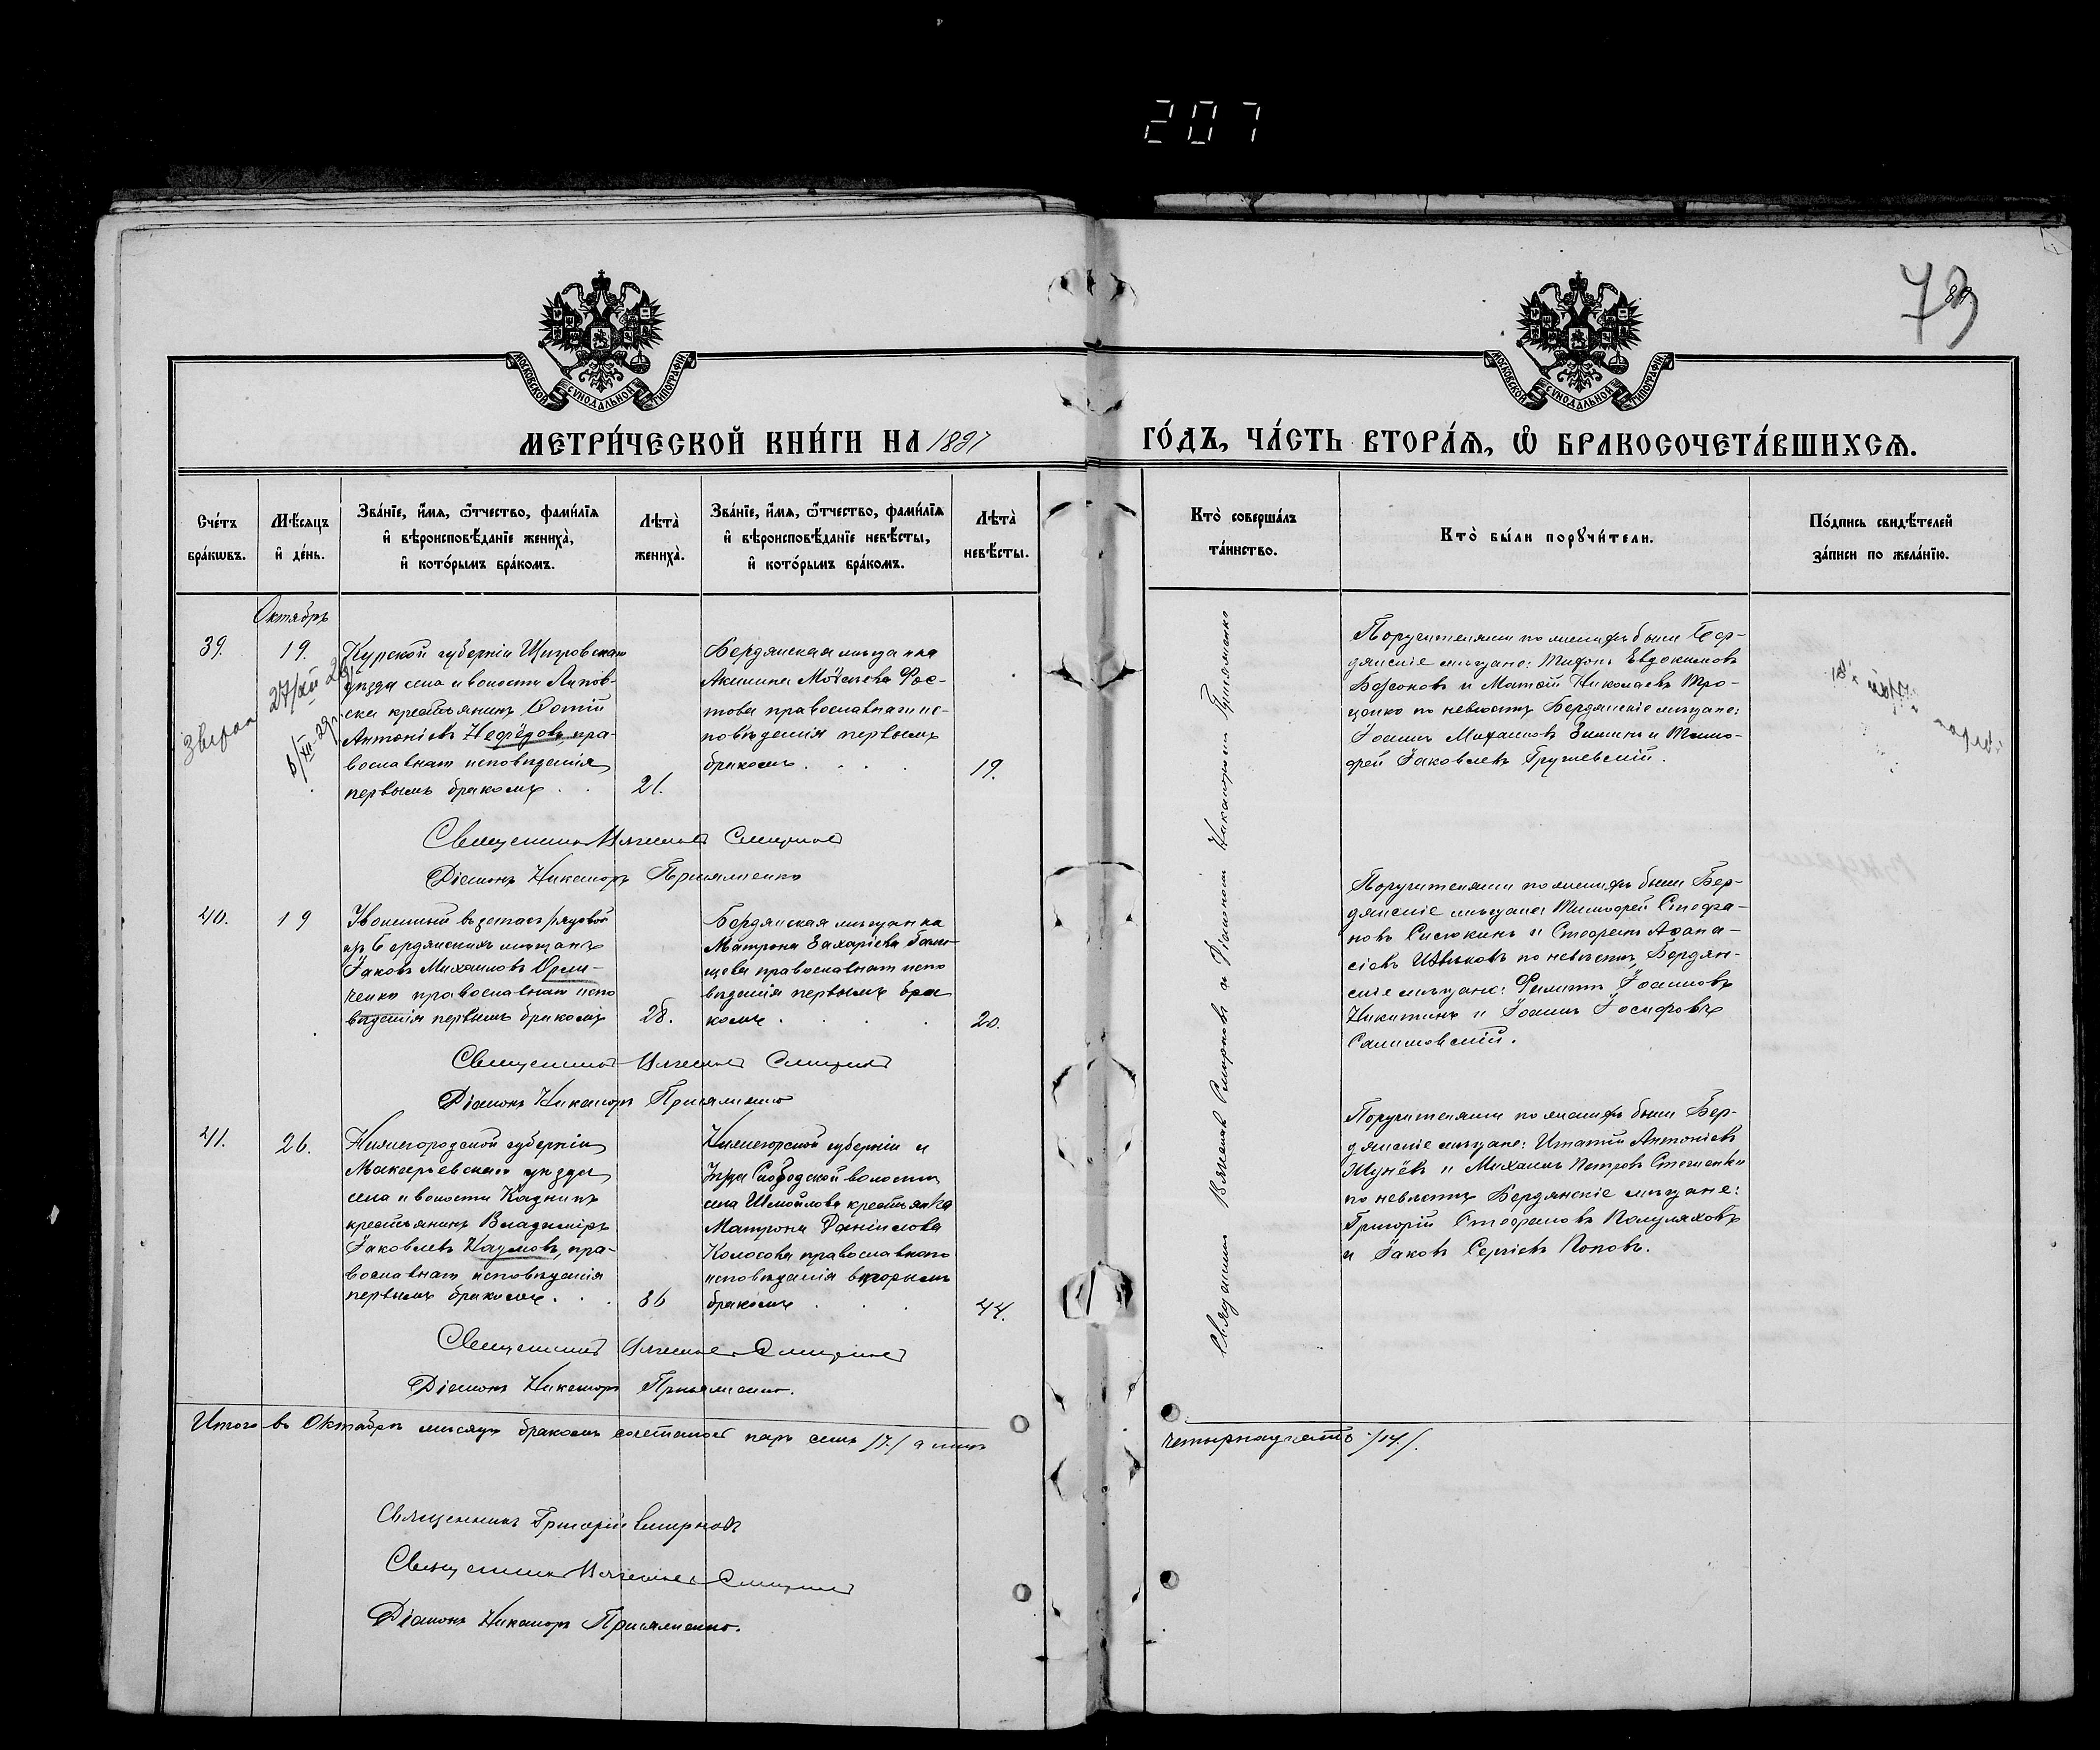 207
73
МОСКОВСКОЙ СУНОДАЛЬНОЙ ТИПОГРАФІИ
МОСКОВСКОЙ СУНОДАЛЬНОЙ ТИПОГРАФІИ
МЕТРИ́ЧЕСКОЙ КНИ́ГИ НА 1897
ГО́ДЪ, ЧА́СТЬ ВТОРА́Я, Ѡ БРАКОСОЧЕТА́ВШИХСЯ.
Сче́тъ бра́кѡвъ.
Мѣ́сяцъ и де́нь.
Зва́нїе, и́мя, ѻ҆́тчество, фами́лїя и вѣроисповѣ́данїе жениха̀, и кото́рымъ бра́комъ.
Лѣта̀ жениха̀.
Зва́нїе, и́мя, ѻ҆́тчество, фами́лїя и вѣроисповѣ́данїе невѣ́сты, и кото́рымъ бра́комъ.
Лѣта̀ невѣ́сты.
Кто̀ соверша́лъ та́инство.
Кто̀ бы́ли порꙋчи́тели.
По́дпись свидѣ́телей за́писи по жела́нїю.
Октябрь
39.
19.
Курской губерніи Щигровскаго
уѣзда села и волости Липов-
ска крестьянинъ Фотій
Антоніевъ Нефёдовъ, пра-
вославнаго исповѣданія
первымъ бракомъ
21.
Бердянская мѣщанка
Акилина Моѵсеева Рос-
това православнаго ис-
повѣданія первымъ
бракомъ
19.
Поручителями по женихѣ были Бер-
дянскіе мѣщане: Тихонъ Евдокимовъ
Борсоковъ и Матѳій Николаевъ Тро-
ценко по невѣстѣ Бердянскіе мѣщане:
Іоаннъ Михаиловъ Зининъ и Тимо-
фей Іаковлевъ Гружевскій.
Священникъ Вячеславъ Смирновъ
Діаконъ Никаноръ Присяженко
40.
19
из Бердянскихъ мѣщанъ
Іаковъ Михаиловъ
православнаго испо
вѣданія первымъ бракомъ
28.
Бердянская мѣщанка
Матрона Захаріева
православнаго испо
вѣданія первымъ бра
комъ
20.
Поручителями по женихѣ были Бер-
дянскіе мѣщане Тимофей Стефа-
новъ Сисюкинъ и Стефанъ Афана-
сіевъ Ивлиховъ по невѣстѣ, Бердян-
скіе мѣщане: Филиппъ Іоанновъ
Никитинъ и Іоаннъ Іосифовъ
Салиновскій.
Священникъ Вячеславъ Смирновъ
Діаконъ Никаноръ Присяженко
41.
26.
Нижегородской губерніи
Макарьевскаго уѣзда
села и волости
крестьянинъ Владиміръ
Іаковлевъ Наумовъ, пра-
вославнаго исповѣданія
первымъ бракомъ
36
губерніи и
уѣзда Слободской волости
села Шмойлова крестьянка
Матрона Даніилова
Колосова православнаго
исповѣданія вторымъ
бракомъ
44.
Поручителями по женихѣ были Бер-
дянскіе мѣщане: Игнатій Антоніевъ
и Михаилъ Петровъ Степненко
по невѣстѣ Бердянскіе мѣщане:
Григорій Стефановъ Полуляховъ
и Іаковъ Сергіевъ Поповъ.
Священникъ Вячеславъ Смирновъ
Діаконъ Никаноръ Присяженко.
Священникъ Вячеславъ Смирновъ и Діаконъ Никаноръ Присяженко
Итого въ Октябрѣ мѣсяцѣ бракомъ сочеталось паръ семь /7/ а лицъ
четырнадцать /14/.
Священникъ Григорій Смирновъ
Священникъ Вячеславъ Смирновъ
Діаконъ Никаноръ Присяженко.